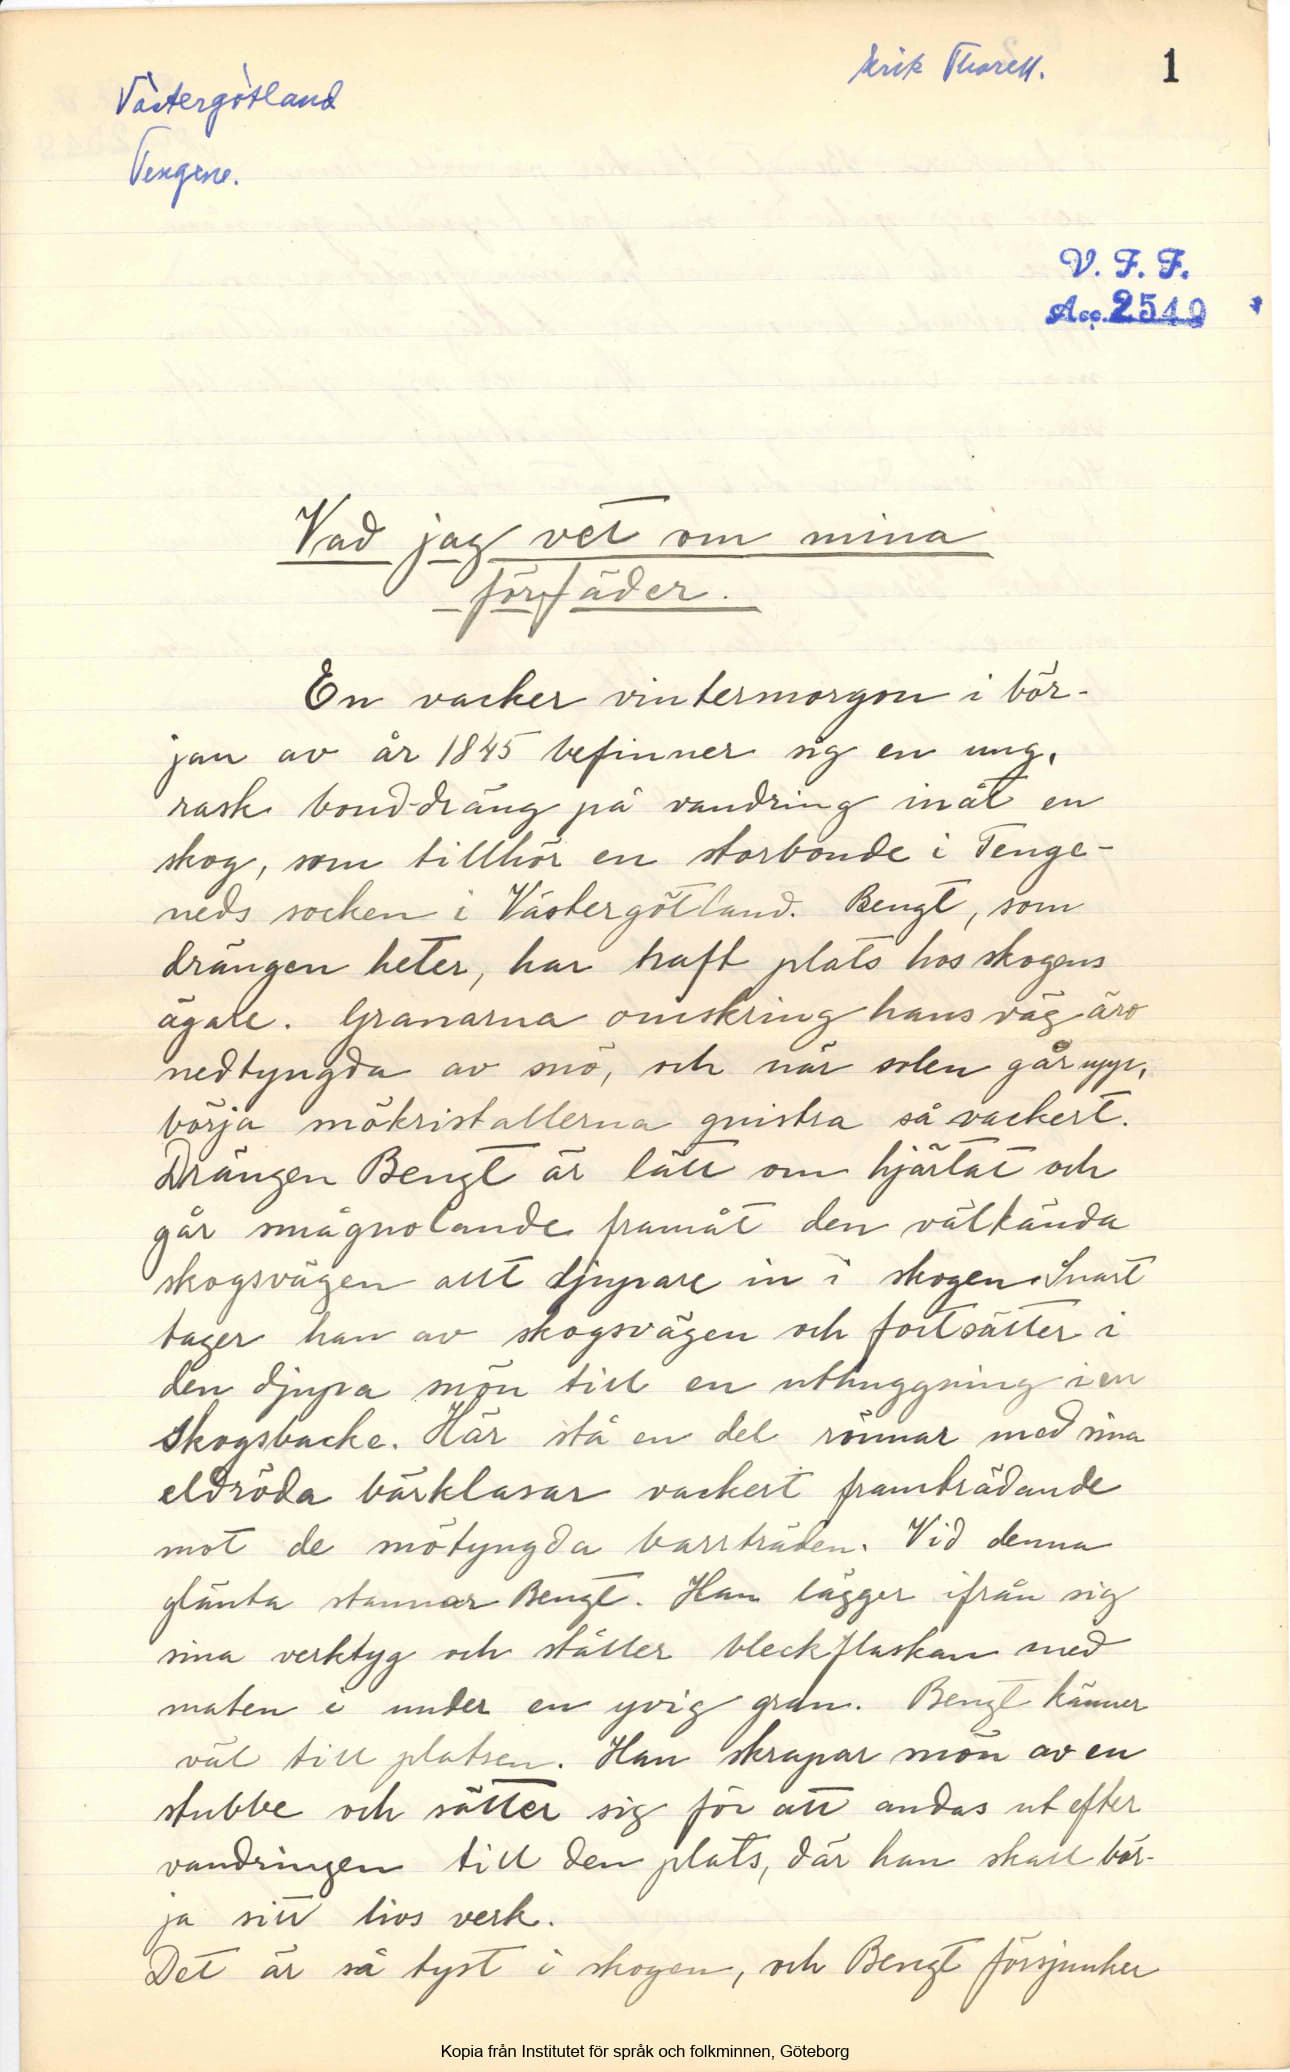 Västergötland
Tengene.
Erik Thorell.
1
V. F. F.
Acc. 2549
Vad jag vet om mina
förfäder.
En vacker vintermorgon i bör-
jan av år 1845 befinner sig en ung,
rask bond-dräng på vandring inåt en
skog, som tillhör en storbonde i Tenge-
neds socken i Västergötland. Bengt, som
drängen heter, har haft plats hos skogens
ägare. Granarna omskring hans väg äro
nedtyngda av snö, och när solen går upp,
börja snökristallerna gnistra så vackert.
Drängen Bengt är lätt om hjärtat och
går smågnolande framåt den välkända
skogsvägen allt djupare in i skogen. Snart
tager han av skogsvägen och fortsätter i
den djupa snön till en uthuggning i en
skogsbacke. Här stå en del rönnar med sina
eldröda bärklasar vackert framträdande
mot de snötyngda barrträden. Vid denna
glänta stannar Bengt. Han lägger ifrån sig
sina verktyg och ställer bleckflaskan med
maten i under en yvig gran. Bengt känner
väl till platsen. Han skrapar snön av en
stubbe och sätter sig för att andas ut efter
vandringen till den plats, där han skall bör-
ja sitt livs verk.
Det är så tyst i skogen, och Bengt försjunker
Kopia från Institutet för språk och folkminnen, Göteborg